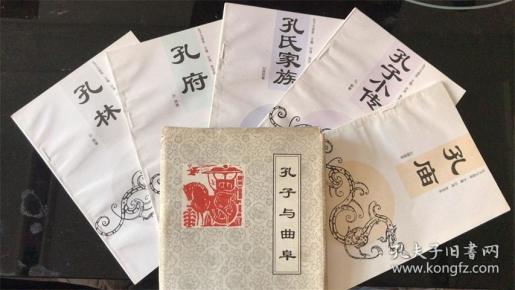 孔林
孔府
孔氏家族
孔子小传
孔庙
孔子与曲阜
孔夫子旧书网
www.kongfz.com